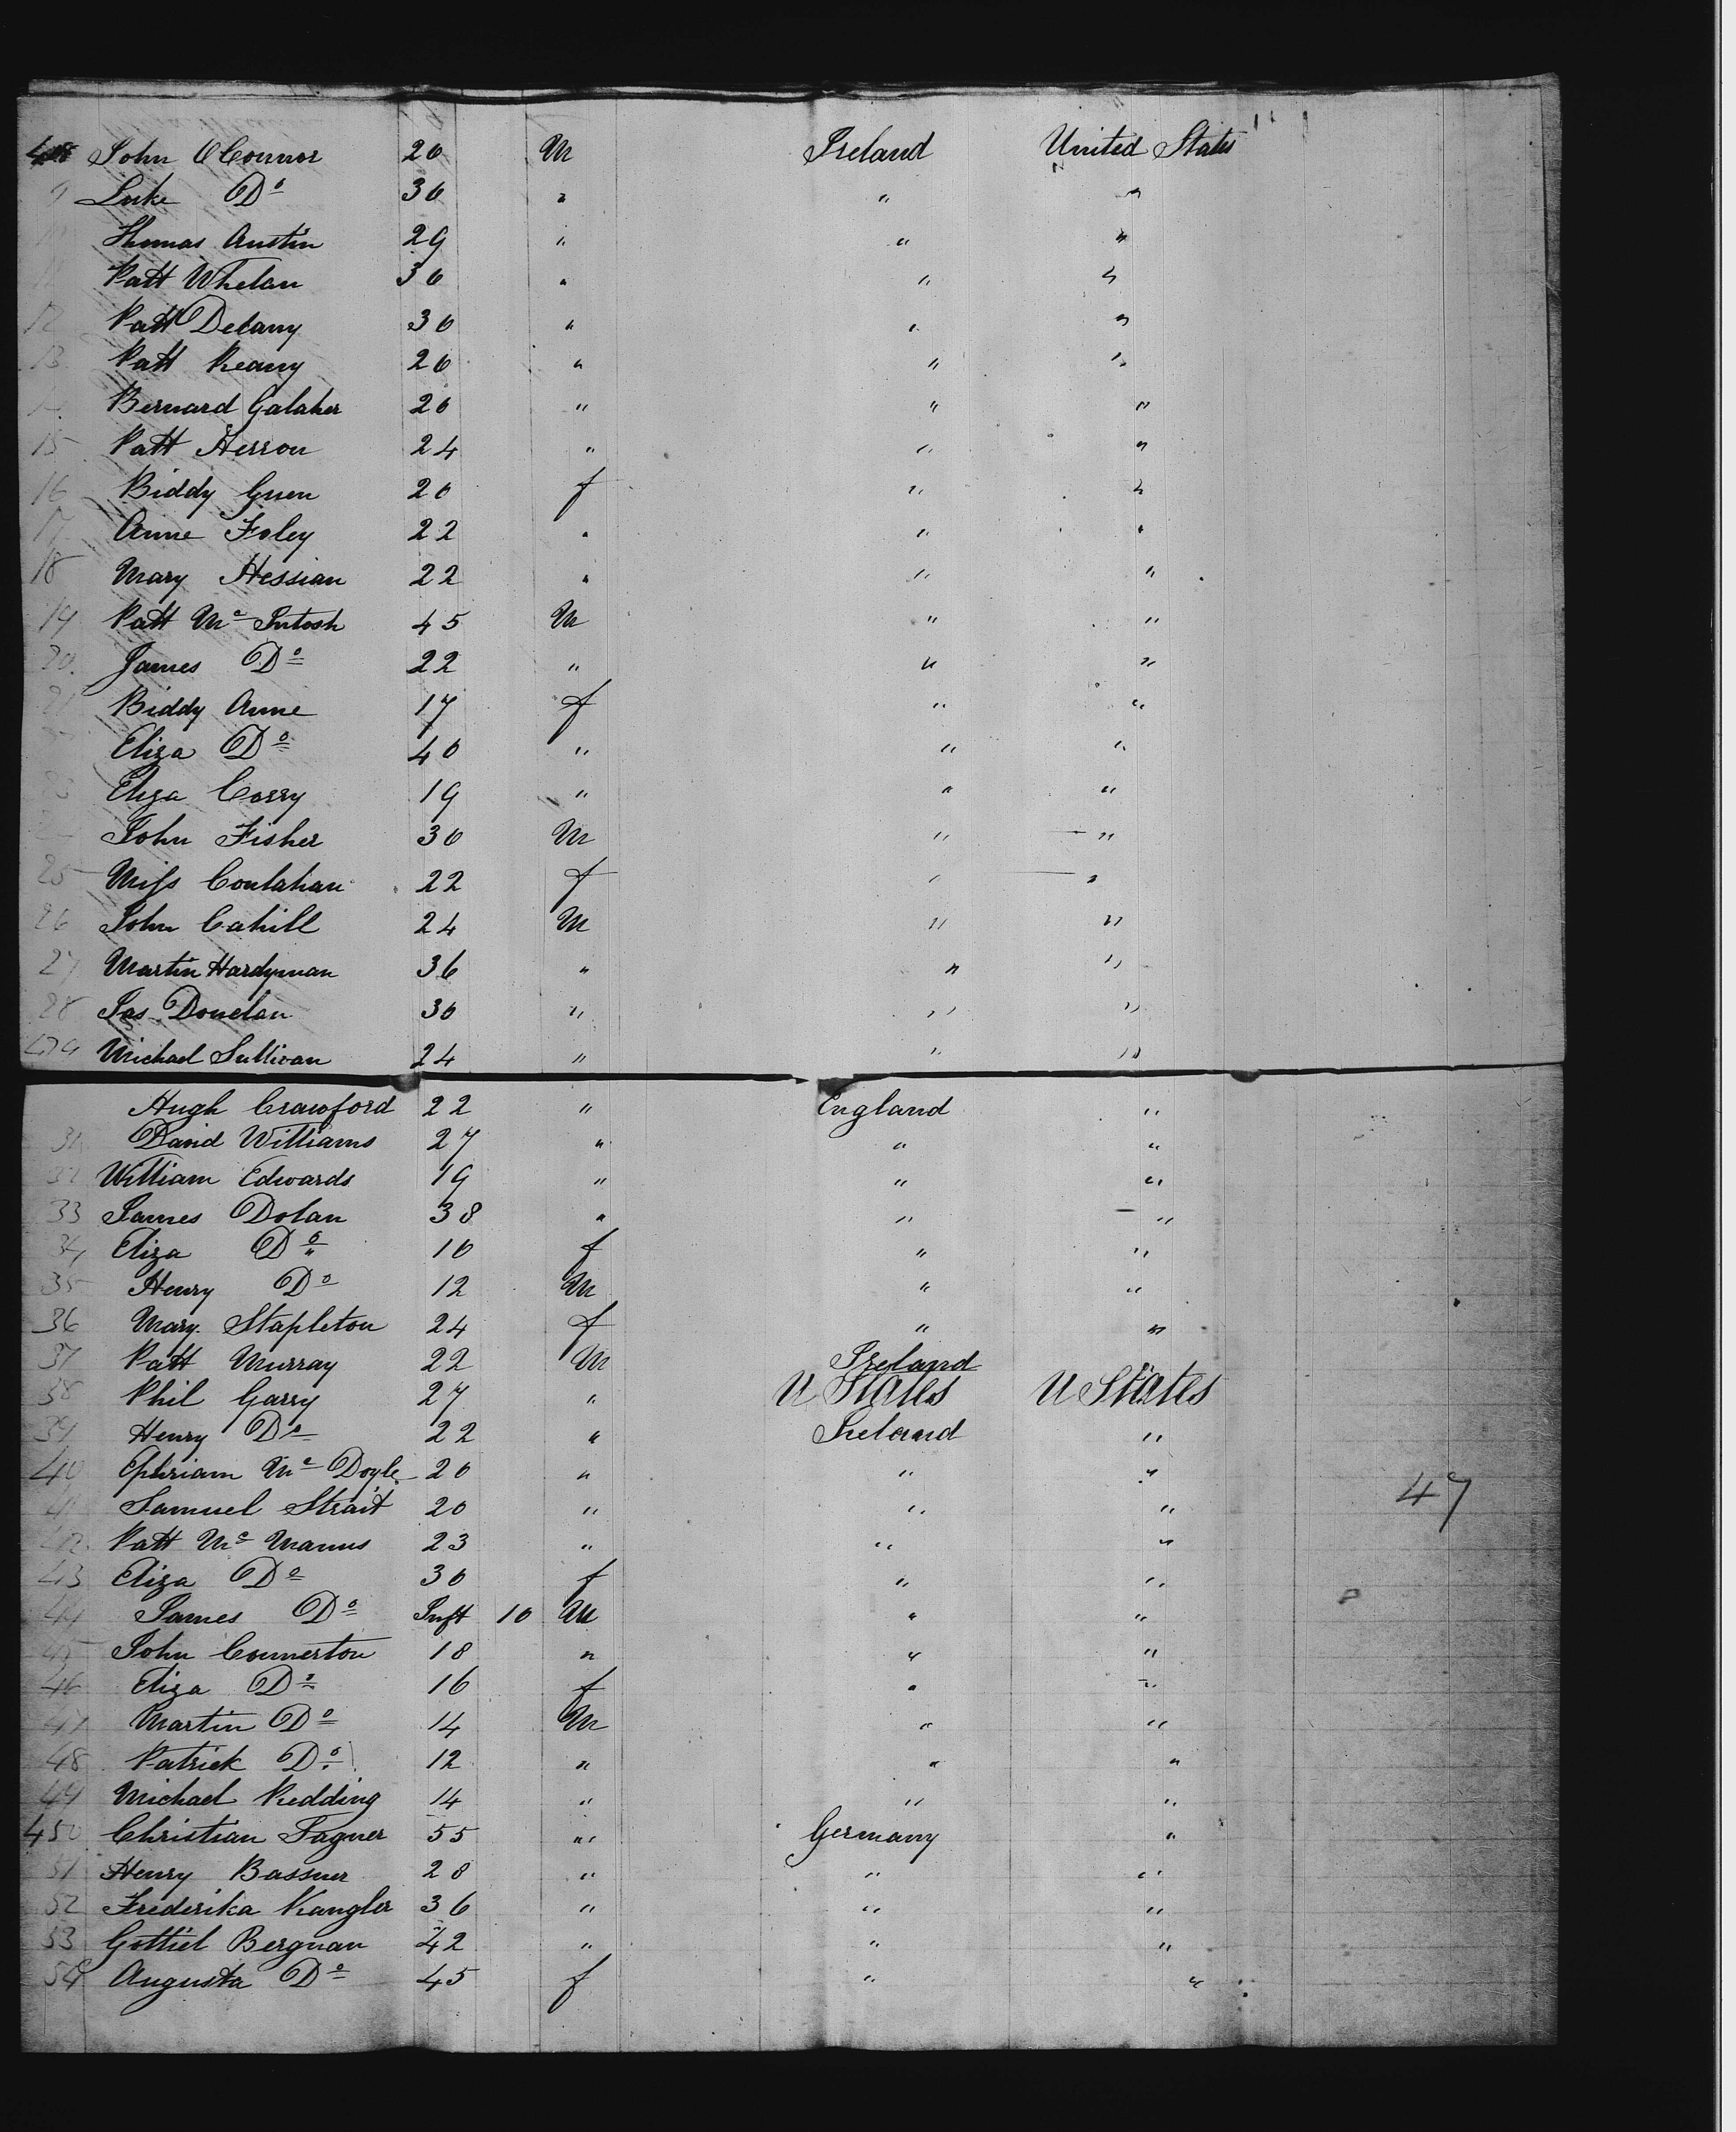 408 John OConnor 20 M Ireland United States
9 Luke Do 30 " " "
Thomas Austin 29 " " "
Patt Whelan 30 " " "
12 Patt Delany 30 " " "
13 Patt Reany 20 " " "
Bernard Galaher 20 " " "
15 Patt Herron 24 " " "
16 Biddy Guen 20 f " "
17 Anne Foley 22 " " "
18 Mary Hessian 22 " " "
19 Patt Mc Intosh 45 M " "
20 James Do 22 " " "
21 Biddy Anne 17 f " "
Eliza Do 40 " " "
23 Eliza Corry 19 " " "
John Fisher 30 M " "
25 Miss Coulahan 22 f " "
26 John Cahill 24 M " "
27 Martin Hardyman 36 " " "
28 Jas Donelan 30 " " "
429 Michael Sullivan 24 " " "
Hugh Crawford 22 " England "
31 David Williams 27 " " "
32 William Edwards 19 " " "
33 James Dolan 38 " " "
34 Eliza Do 10 f " "
35 Henry Do 12 M " "
36 Mary Stapleton 24 f " "
37 Patt Murray 22 M Ireland "
38 Phil Garry 27 " U States U States
39 Henry Do 22 " Ireland "
40 Ephriam Mc Doyle 20 " " "
41 Samuel Strait 20 " " "
47
42 Patt Mc Manus 23 " " "
43 Eliza Do 30 f " "
44 James Do Inft 10 M " "
45 John Connerton 18 " " "
46 Eliza Do 16 f " "
47 Martin Do 14 M " "
48 Patrick Do 12 " " "
49 Michael Redding 14 " " "
450 Christian Fagner 55 " Germany "
51 Henry Bassner 28 " " "
52 Frederika Kangler 36 " " "
53 Gottiel Bergnan 42 " " "
54 Augusta Do 45 f " "